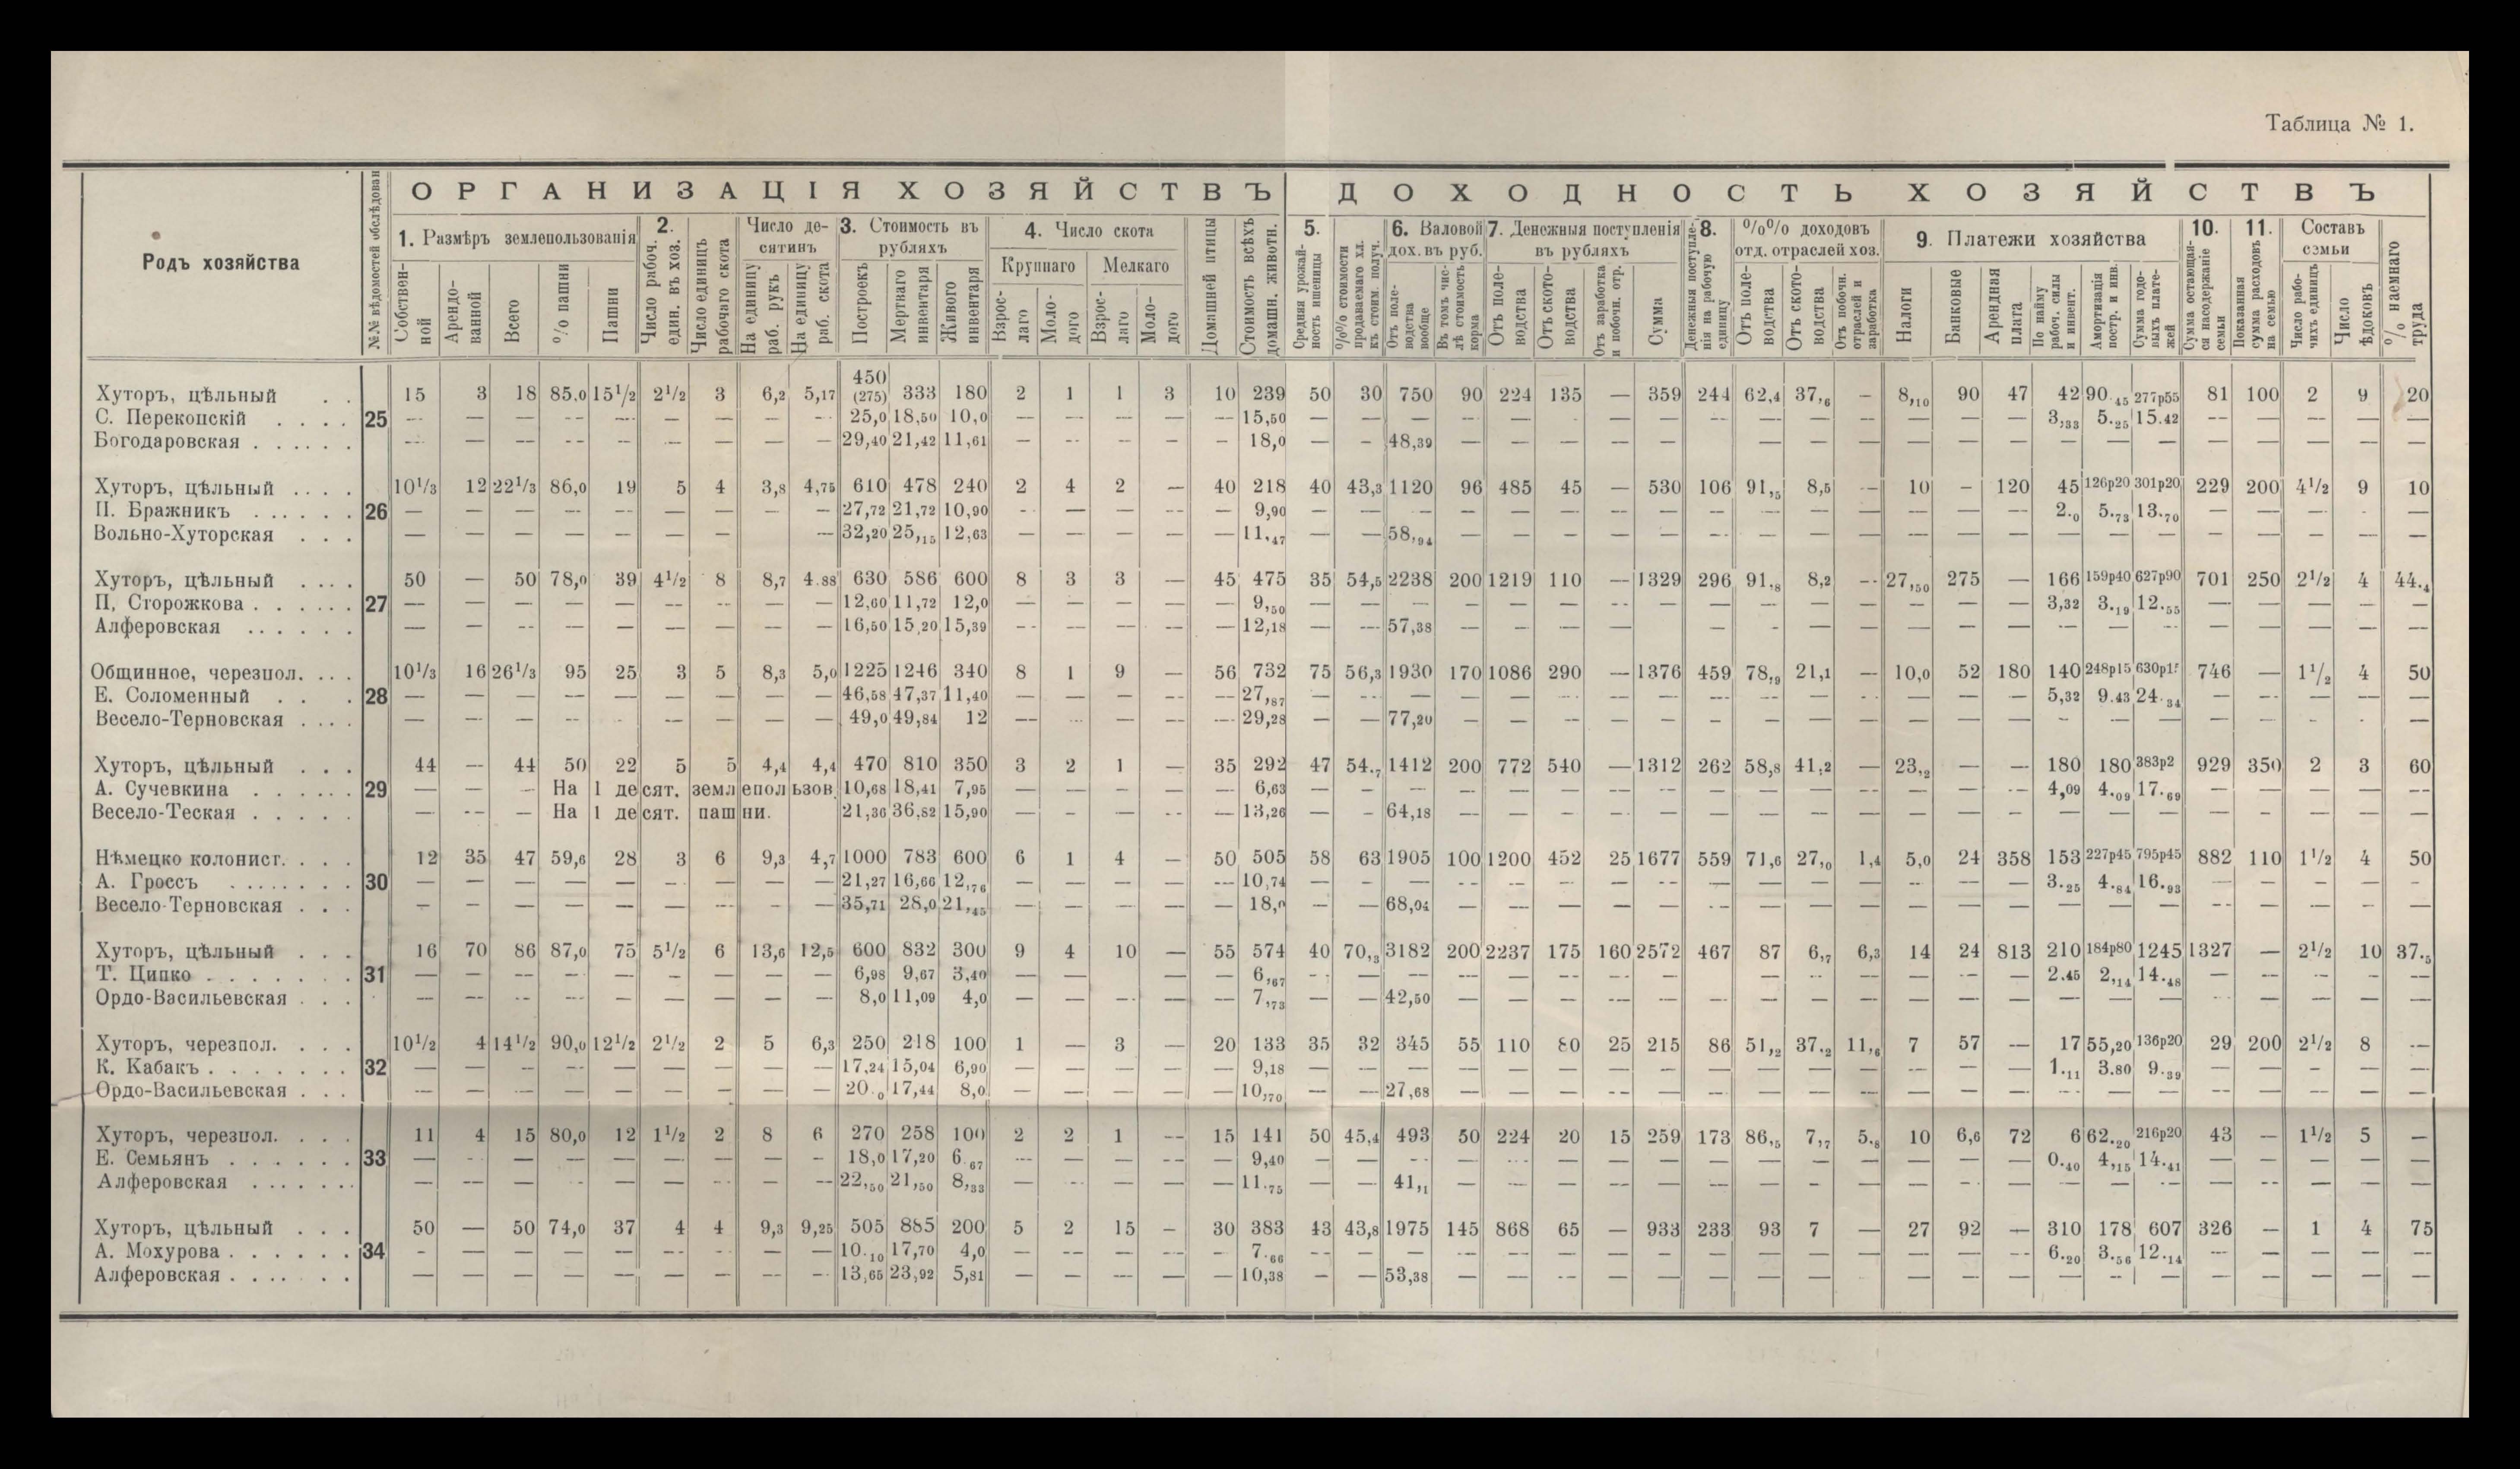 Таблица № 1.
ОРГАНИЗАЦІЯ ХОЗЯЙСТВЪ ДОХОДНОСТЬ ХОЗЯЙСТВЪ
Родъ хозяйства
№№ вѣдомостей обслѣдован
1. Размѣръ землепользованія
Собствен-ной
Арендо-ванной
Всего
% пашни
Пашни
2. Число рабоч. един. въ хоз.
Число единицъ рабочаго скота
Число де-сятинъ
На единицу раб. рукъ
На единицу раб. скота
3. Стоимость въ рубляхъ
Построекъ
Мертваго инвентаря
Живого инвентаря
4. Число скота
Крупнаго
Взрос-лаго
Моло-дого
Мелкаго
Взрос-лаго
Моло-дого
Домашней птицы
Стоимость всѣхъ домашн. животн.
5. Средняя урожай-ность пшеницы
%% стоимости продаваемаго хл. къ стоим. получ.
6. Валовой дох. въ руб.
Отъ поле-водства вообще
Въ томъ чис-лѣ стоимость корма
7. Денежныя поступленія въ рубляхъ
Отъ поле-водства
Отъ ското-водства
Отъ заработка и побочн. отр.
Сумма
8. Денежныя поступле-нія на рабочую единицу
%% доходовъ отд. отраслей хоз.
Отъ поле-водства
Отъ ското-водства
Отъ побочн. отраслей и заработка
9. Платежи хозяйства
Налоги
Банковые
Арендная плата
По найму рабоч. силы и инвент.
Амортизація постр. и инв.
Сумма годо-выхъ плате-жей
10. Сумма остающая-ся на содержаніе семьи
11. Показанная сумма расходовъ на семью
Составъ семьи
Число рабо-чихъ единицъ
Число ѣдоковъ
% наемнаго труда
Хуторъ, цѣльный . . 15 3 18 85,0 15½ 2½ 3 6,2 5,17 450 (275) 333 180 2 1 1 3 10 239 50 30 750 90 224 135 — 359 244 62,4 37,6 — 8,10 90 47 42 90.45 277р55 81 100 2 9 20
С. Перекопскій . . . . 25 — — — — — — — — — 25,0 18,50 10,0 — — — — — 15,50 — — — — — — — — — — — — — — — 3,33 5.25 15.42 — — — — —
Богодаровская . . . . . . — — — — — — — — — 29,40 21,42 11,61 — — — — — 18,0 — — 48,39 — — — — — — — — — — — — — — — — — — — —
Хуторъ, цѣльный . . . . 10⅓ 12 22⅓ 86,0 19 5 4 3,8 4,75 610 478 240 2 4 2 — 40 218 40 43,3 1120 96 485 45 — 530 106 91,5 8,5 — 10 — 120 45 126р20 301р20 229 200 4½ 9 10
П. Бражникъ . . . . . . 26 — — — — — — — — — 27,72 21,72 10,90 — — — — — 9,90 — — — — — — — — — — — — — — — 2.0 5.73 13.70 — — — — —
Вольно-Хуторская . . . — — — — — — — — 32,20 25,15 12,63 — — — — — 11,47 — — 58,94 — — — — — — — — — — — — — — — — — — — —
Хуторъ, цѣльный . . . . 50 — 50 78,0 39 4½ 8 8,7 4.88 630 586 600 8 3 3 — 45 475 35 54,5 2238 200 1219 110 — 1329 296 91,8 8,2 — 27,50 275 — 166 159р40 627р90 701 250 2½ 4 44.4
П, Сторожкова . . . . . . 27 — — — — — — — — — 12,60 11,72 12,0 — — — — — 9,50 — — — — — — — — — — — — — — — 3,32 3.19 12.55 — — — — —
Алферовская . . . . . . — — — — — — — — — 16,50 15,20 15,39 — — — — — 12,18 — — 57,38 — — — — — — — — — — — — — — — — — — — —
Общинное, черезпол. . . . 10⅓ 16 26⅓ 95 25 3 5 8,3 5,0 1225 1246 340 8 1 9 — 56 732 75 56,3 1930 170 1086 290 — 1376 459 78,9 21,1 — 10,0 52 180 140 248р15 746 — 1½ 4 50
Е. Соломенный . . . 28 — — — — — — — — — 46,58 47,37 11,40 — — — — — 27,87 — — — — — — — — — — — — — — — 5,32 9.43 24.34 — — — — —
Весело-Терновская . . . . — — — — — — — — — 49,0 49,84 12 — — — — — 29,28 — — 77,20 — — — — — — — — — — — — — — — — — — — —
Хуторъ, цѣльный . . . 44 — 44 50 22 5 5 4,4 4,4 470 810 350 3 2 1 — 35 292 47 54.7 1412 200 772 540 — 1312 262 58,8 41,2 — 23,2 — — 180 180 383р2 929 350 2 3 60
А. Сучевкина . . . . . . 29 — — — На 1 десят. землепользов. 10,68 18,41 7,95 — — — — — 6,63 — — — — — — — — — — — — — — — 4,09 4.09 17.69 — — — — —
Весело-Теская . . . . . — — — На 1 десят. пашни. 21,36 36,82 15,90 — — — — — 13,26 — — 64,18 — — — — — — — — — — — — — — — — — — — —
Нѣмецко колонист. . . . 12 35 47 59,6 28 3 6 9,3 4,7 1000 783 600 6 1 4 — 50 505 58 63 1905 100 1200 452 25 1677 559 71,6 27,0 1,4 5,0 24 358 153 227р45 795р45 882 110 1½ 4 50
А. Гроссъ . . . . . . . . 30 — — — — — — — — — 21,27 16,66 12,76 — — — — — 10,74 — — — — — — — — — — — — — — — 3.25 4.84 16.93 — — — — —
Весело-Терновская . . . — — — — — — — — — 35,71 28,0 21,45 — — — — — 18,0 — — 68,04 — — — — — — — — — — — — — — — — — — — —
Хуторъ, цѣльный . . . 16 70 86 87,0 75 5½ 6 13,6 12,5 600 832 300 9 4 10 — 55 574 40 70,3 3182 200 2237 175 160 2572 467 87 6,7 6,3 14 24 813 210 184р80 1245 1327 — 2½ 10 37.5
Т. Ципко . . . . . . . . 31 — — — — — — — — — 6,98 9,67 3,40 — — — — 6,67 — — — — — — — — — — — — — — — 2.45 2,14 14.48 — — — — —
Ордо-Васильевская . . . — — — — — — — — — 8,0 11,09 4,0 — — — — — 7,73 — — 42,50 — — — — — — — — — — — — — — — — — — — —
Хуторъ, черезпол. . . . 10½ 4 14½ 90,0 12½ 2½ 2 5 6,3 250 218 100 1 — 3 — 20 133 35 32 345 55 110 80 25 215 86 51,2 37.2 11,6 7 57 — 17 55,20 136р20 29 200 2½ 8 —
К. Кабакъ . . . . . . . 32 — — — — — — — — — 17,24 15,04 6,90 — — — — — 9,18 — — — — — — — — — — — — — — — 1.11 3.80 9.39 — — — — —
Ордо-Васильевская . . . — — — — — — — — — 20.0 17,44 8,0 — — — — — 10,70 — — 27,68 — — — — — — — — — — — — — — — — — — — —
Хуторъ, черезпол. . . . 11 4 15 80,0 12 1½ 2 8 6 270 258 100 2 2 1 — 15 141 50 45,4 493 50 224 20 15 259 173 86,5 7,7 5.8 10 6,6 72 6 62.20 216р20 43 — 1½ 5 —
Е. Семьянъ . . . . . . 33 — — — — — — — — — 18,0 17,20 6.67 — — — — — 9,40 — — — — — — — — — — — — — — — 0.40 4,15 14.41 — — — — —
Алферовская . . . . . . — — — — — — — — — 22,50 21,50 8,33 — — — — — 11.75 — — 41,1 — — — — — — — — — — — — — — — — — — — —
Хуторъ, цѣльный . . . 50 — 50 74,0 37 4 4 9,3 9,25 505 885 200 5 2 15 — 30 383 43 43,8 1975 145 868 65 — 933 233 93 7 — 27 92 — 310 178 607 326 — 1 4 75
А. Мохурова . . . . . . 34 — — — — — — — — — 10.10 17,70 4,0 — — — — — 7.66 — — — — — — — — — — — — — — — 6.20 3.56 12.14 — — — — —
Алферовская . . . . . . — — — — — — — — — 13,65 23,92 5,81 — — — — — 10,38 — — 53,38 — — — — — — — — — — — — — — — — — — — —